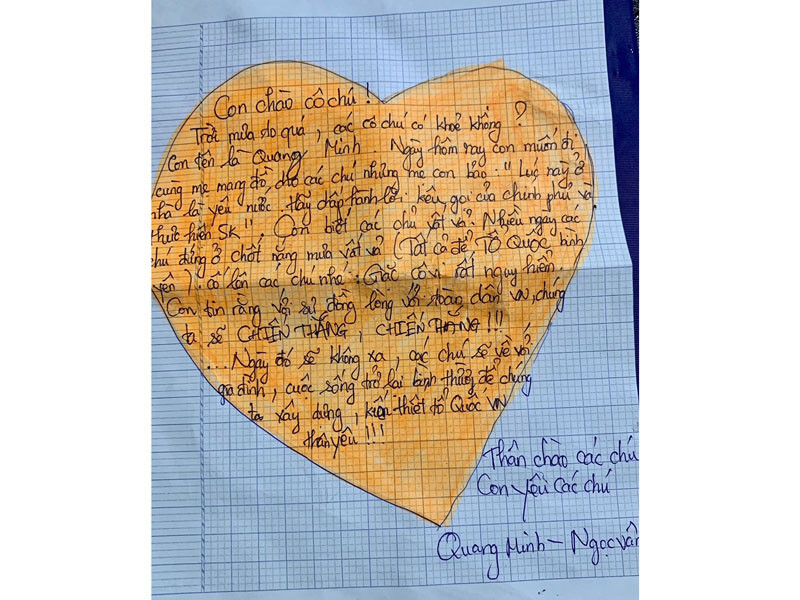 Con chào cô chú !
Trời mưa to quá , các cô chú có khoẻ không ?
Con tên là Quang Minh Ngày hôm nay con muốn đi
cùng mẹ mang đồ cho các chú nhưng mẹ con bảo : " Lúc này ở
nhà là yêu nước. Hãy chấp hành lời kêu gọi của chính phủ và
thực hiện 5K ". Con biết các chú vất vả. Nhiều ngày các
chú đứng ở chốt nắng mưa vất vả ( Tất cả để TỔ QUỐC bình
yên ). cố lên các chú nhé . Giặc côvi rất nguy hiểm.
Con tin rằng với sự đồng lòng với toàn dân VN, chúng
ta sẽ CHIẾN THẮNG , CHIẾN THẮNG !!!
... Ngày đó sẽ không xa , các chú sẽ về với
gia đình , cuộc sống trở lại bình thường để chúng
ta xây dựng , kiến thiết tổ Quốc VN
thân yêu !!!
Thân chào các chú
Con yêu các chú
Quang Minh – Ngọc Vân